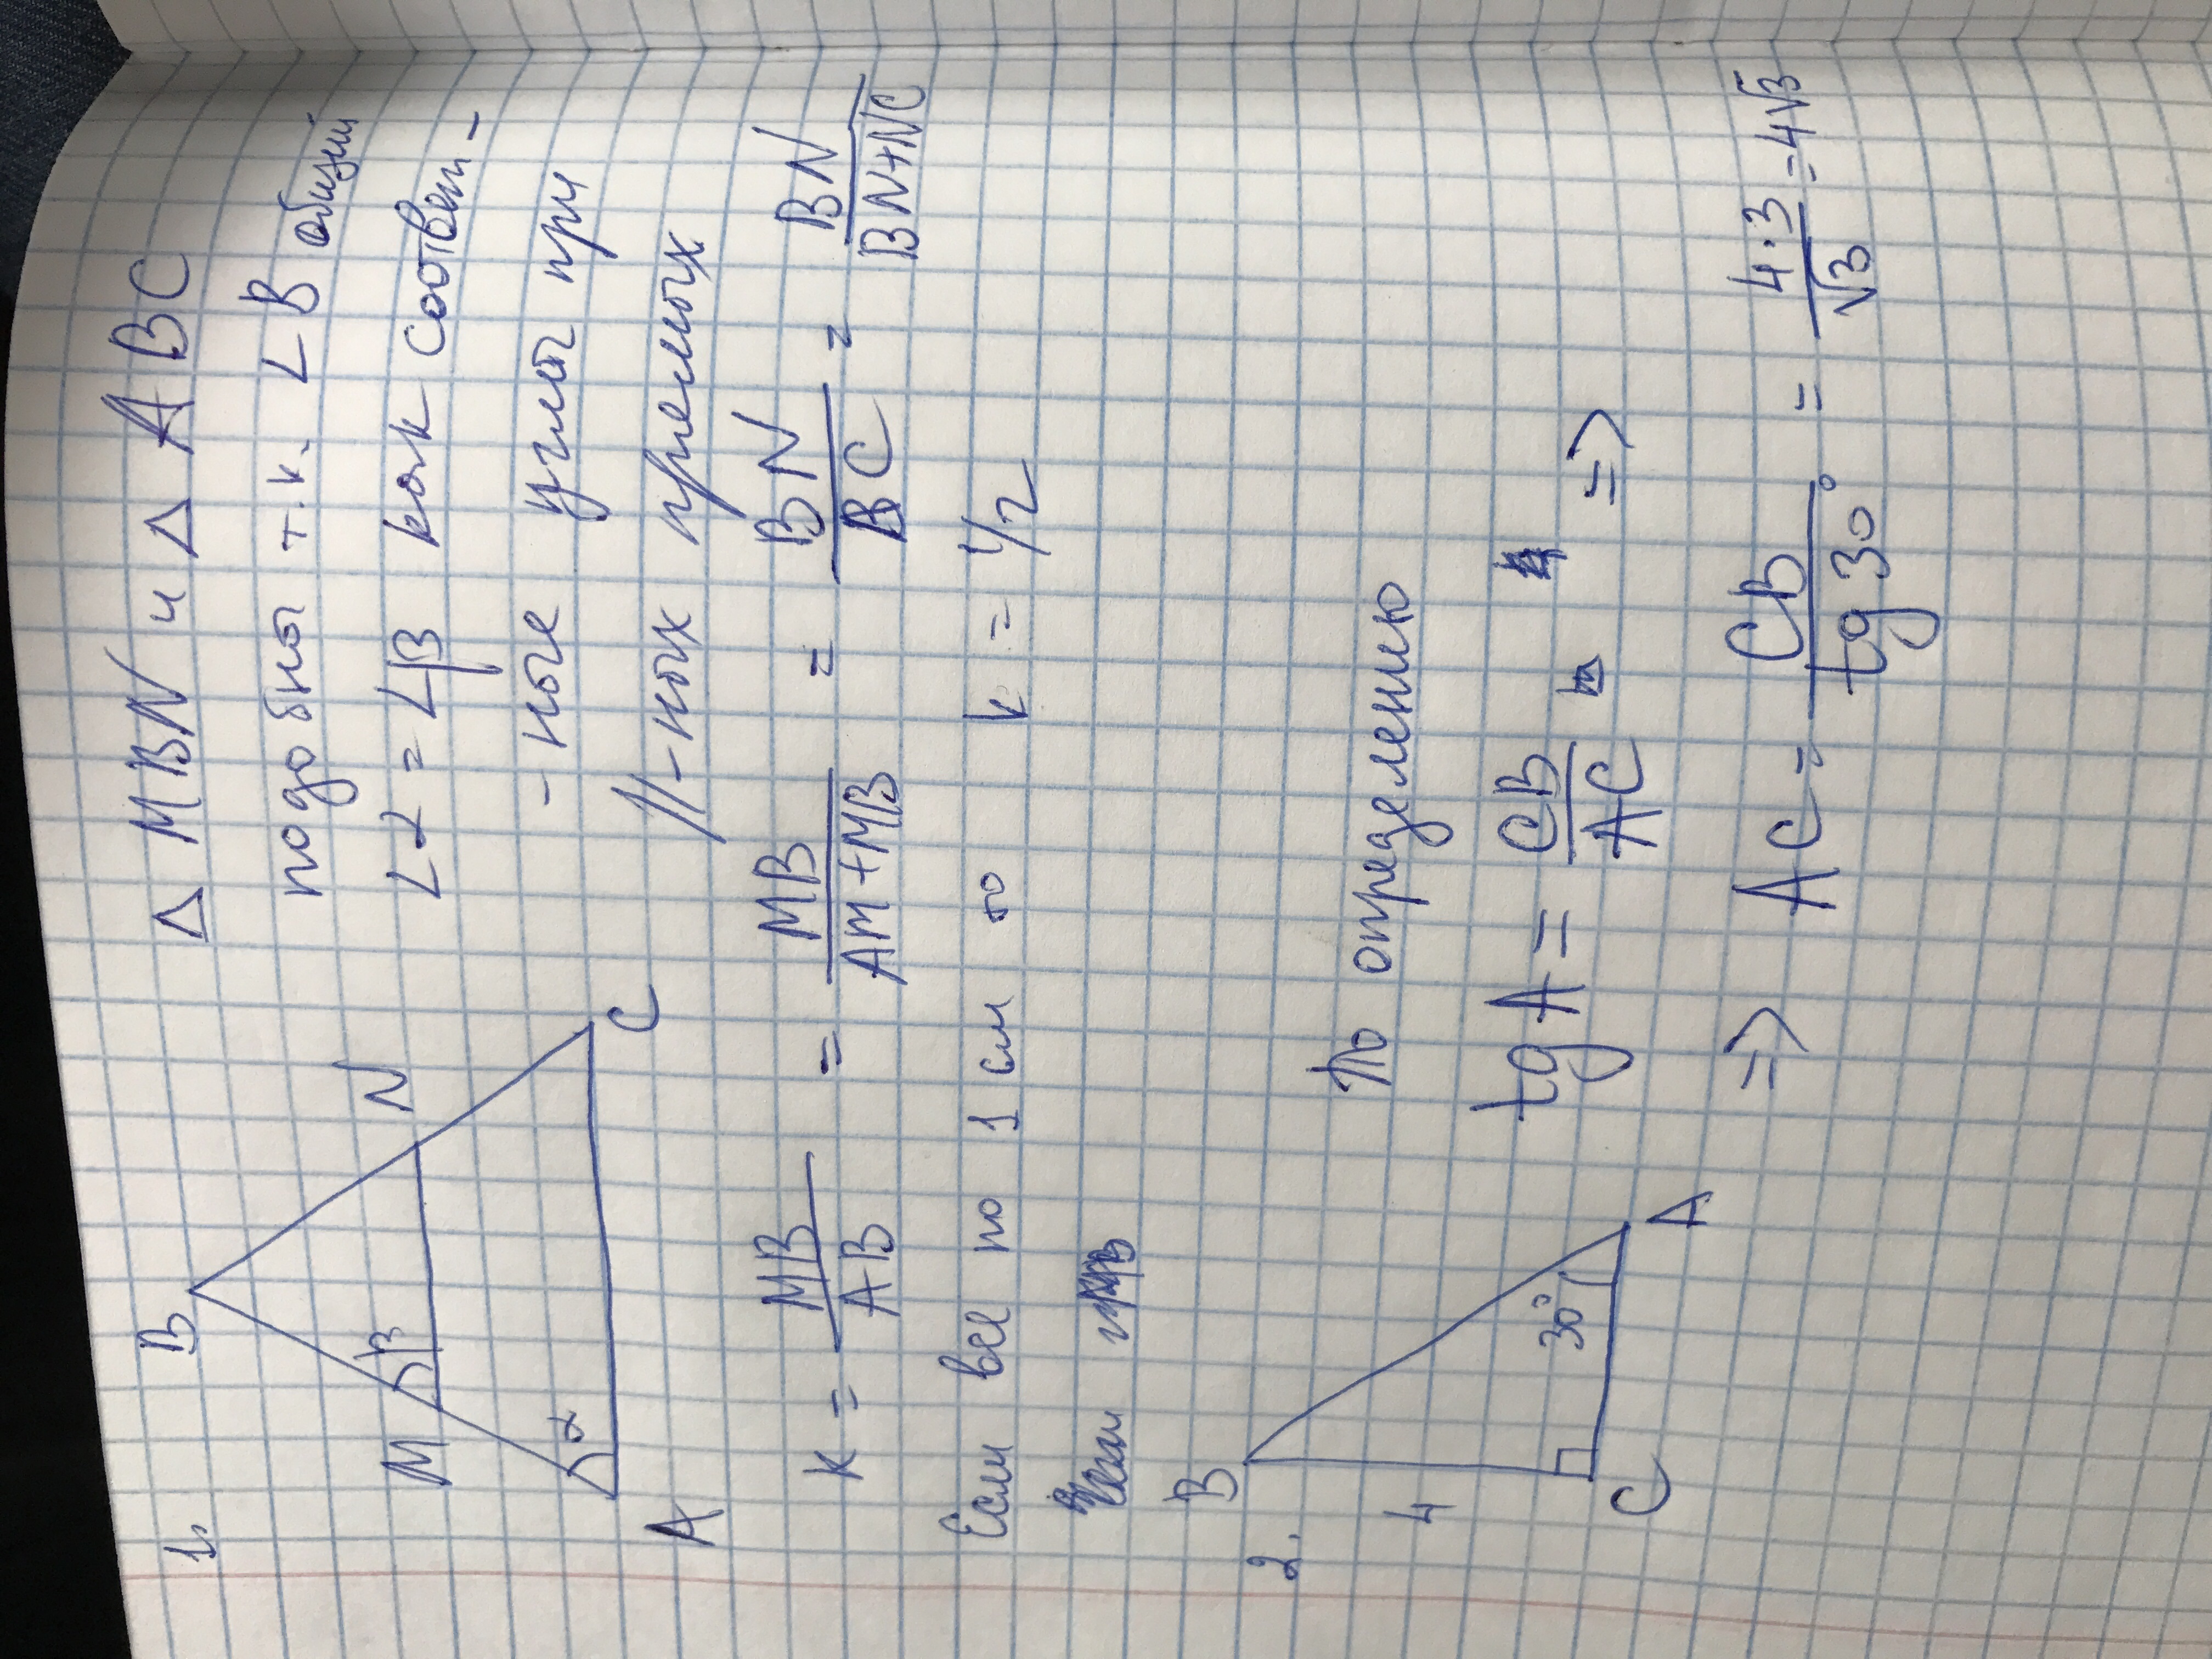 1.
B
M
N
A
C
β
α
Δ MBN и Δ ABC
подобны т.к. ∠B общий
∠α = ∠β как соответ-
-ные углы при
//-ных прямых
k = MB/AB = MB/(AM+MB) = BN/BC = BN/(BN+NC)
Если все по 1 см то k = 1/2
2.
B
4
C
30°
A
По определению
tg A = CB/AC =>
=> AC = CB/tg 30° = 4·3/√3 = 4√3